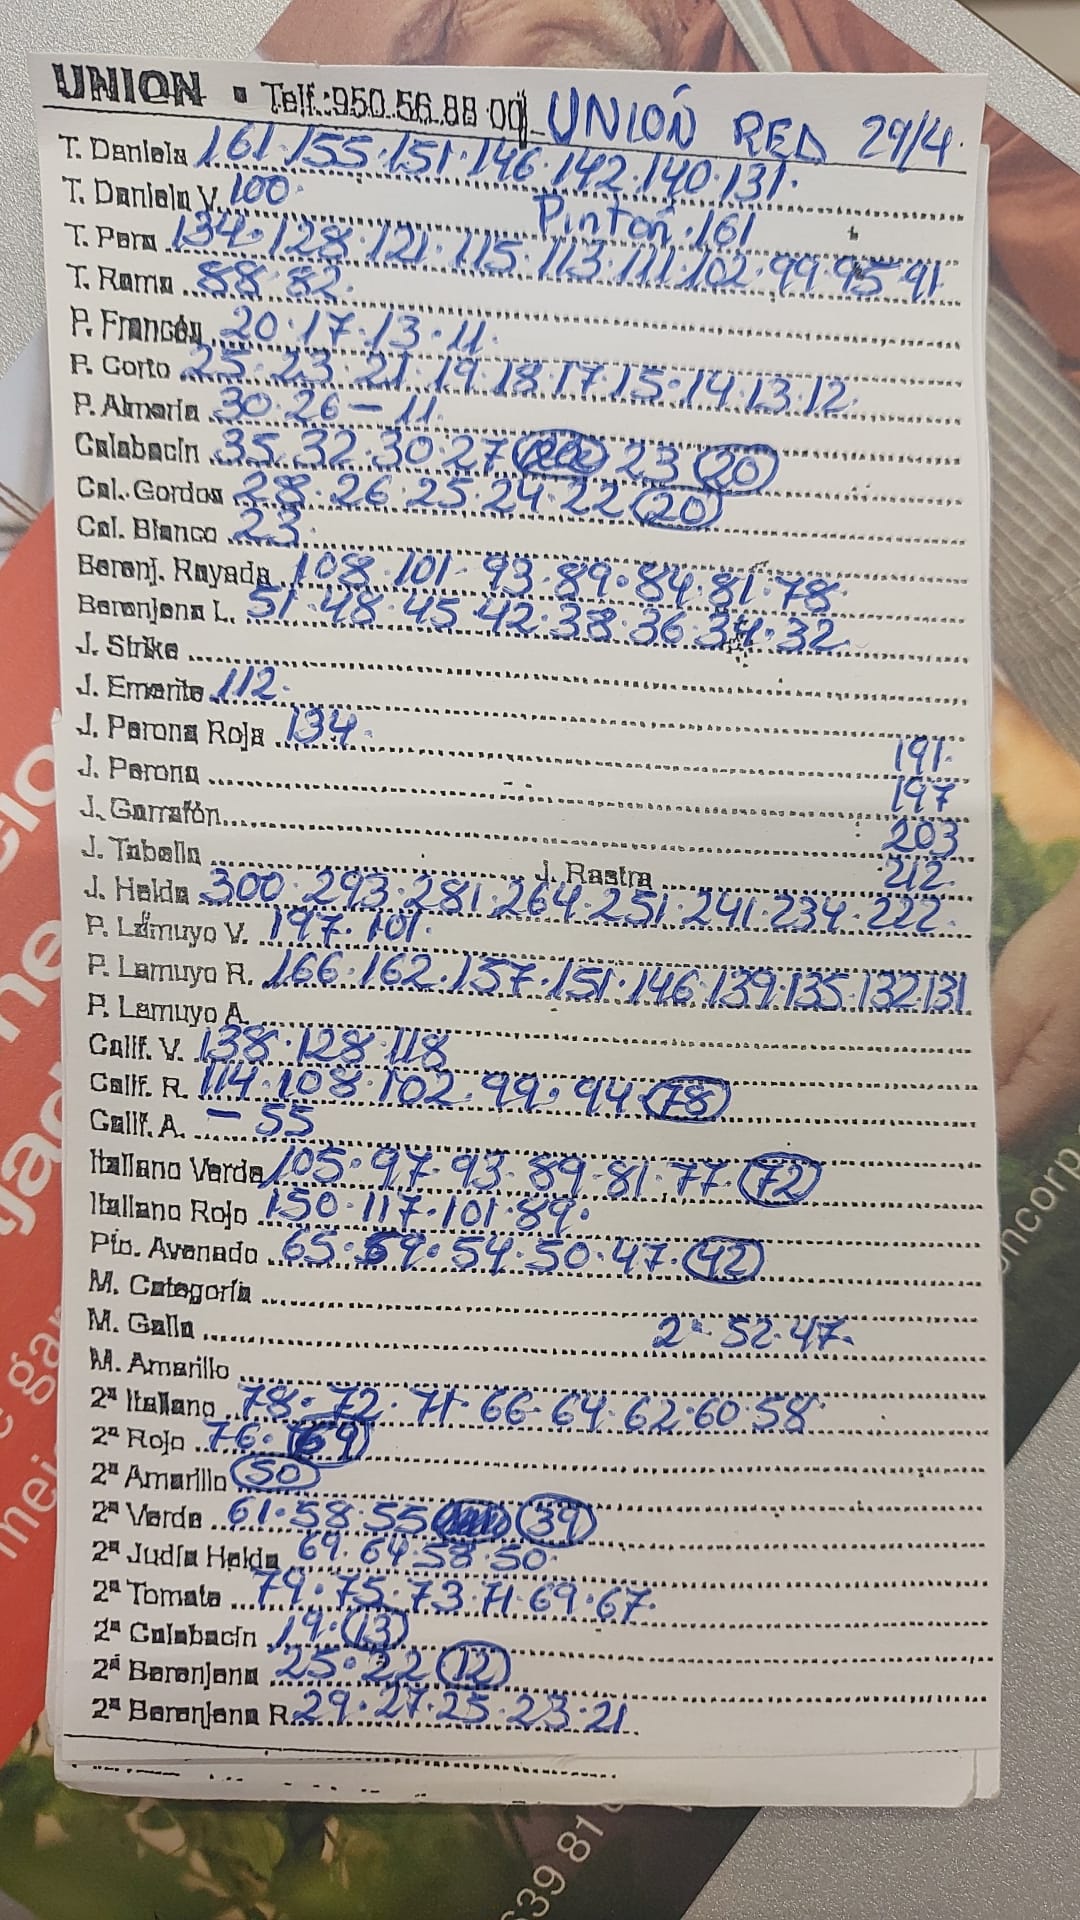 UNION ▪ Telf.:950.56.88 00 UNIÓN RED 29/4.
T. Daniela 161.155.151.146.142.140.131.
T. Daniela V. 100. Pintón.161
T. Pera 134.128.121.115.113.111.102.99.95.91.
T. Rama 88.82.
P. Francés 20.17.13.11.
P. Corto 25.23.21.19.18.17.15.14.13.12.
P. Almería 30.26-11.
Calabacín 35.32.30.27 23 20
Cal. Gordos 28.26.25.24.22 20
Cal. Blanco 23.
Berenj. Rayada 108.101.93.89.84.81.78.
Berenjena L. 51.48.45.42.38.36.34.32.
J. Strike
J. Emerite 112.
J. Perona Roja 134.
191.
J. Perona
197
J. Garrafón
203
J. Tabella J. Rastra 212.
J. Helda 300.293.281.264.251.241.234.222.
P. Lamuyo V. 197.101.
P. Lamuyo R. 166.162.157.151.146.139.135.132.131
P. Lamuyo A.
Calif. V. 138.128.118
Calif. R. 114.108.102.99.94 78
Calif. A. - 55
Italiano Verde 105.97.93.89.81.77. 72
Italiano Rojo 150.117.101.89.
Pto. Avenado 65.59.54.50.47. 42
M. Categoría
M. Galia 2ª 52.47.
M. Amarillo
2ª Italiano 78.72.71.66.64.62.60.58.
2ª Rojo 76. 69
2ª Amarillo 50
2ª Verde 61.58.55 39
2ª Judía Helda 69.64.58.50.
2ª Tomate 79.75.73.71.69.67.
2ª Calabacín 19. 13
2ª Berenjena 25.22 12
2ª Berenjena R. 29.27.25.23.21.